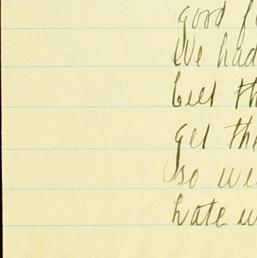 good f
We had
but th
get the
so we
hate w